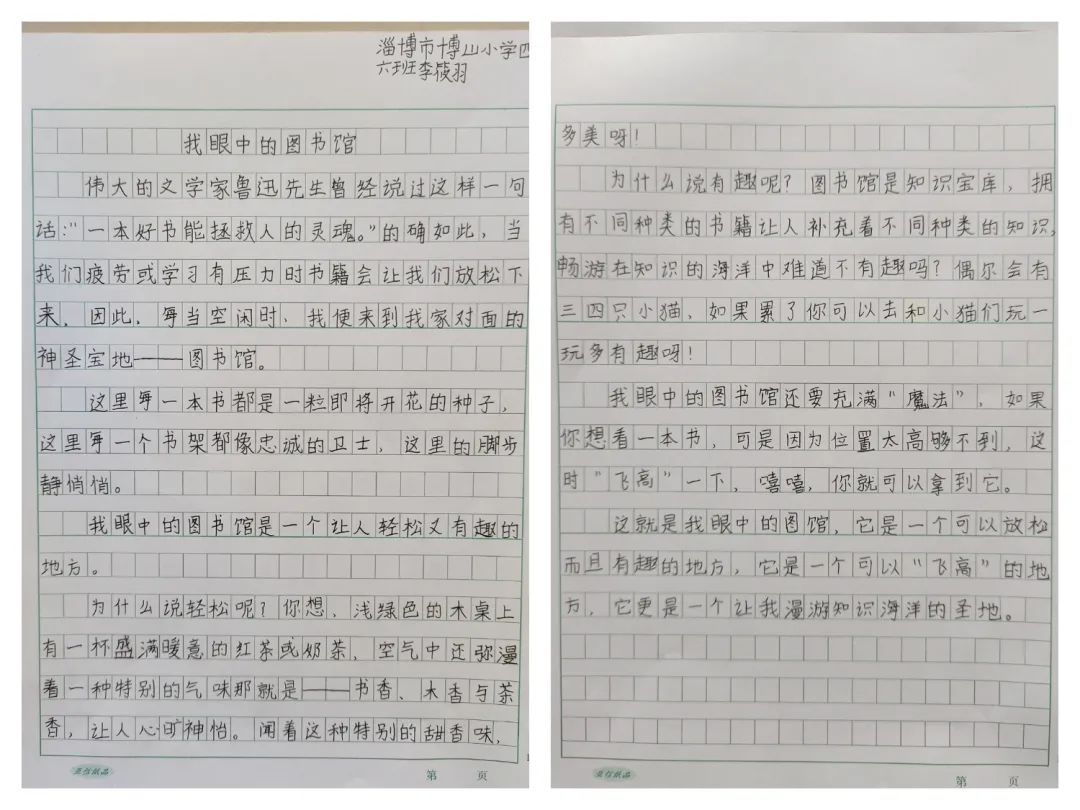 淄博市博山小学四
六班李筱羽
我眼中的图书馆
伟大的文学家鲁迅先生曾经说过这样一句
话:“一本好书能拯救人的灵魂。”的确如此，当
我们疲劳或学习有压力时书籍会让我们放松下
来，因此，每当空闲时、我便来到我家对面的
神圣宝地——图书馆。
这里每一本书都是一粒即将开花的种子，
这里每一个书架都像忠诚的卫士，这里的脚步
静悄悄。
我眼中的图书馆是一个让人轻松又有趣的
地方。
为什么说轻松呢？你想，浅绿色的木桌上
有一杯盛满暖意的红茶或奶茶，空气中还弥漫
着一种特别的气味那就是——书香、木香与茶
香，让人心旷神怡。闻着这种特别的甜香味，
第 页
多美呀！
为什么说有趣呢？图书馆是知识宝库，拥
有不同种类的书籍让人补充着不同种类的知识，
畅游在知识的海洋中难道不有趣吗？偶尔会有
三四只小猫，如果累了你可以去和小猫们玩一
玩多有趣呀！
我眼中的图书馆还要充满“魔法”，如果
你想看一本书，可是因为位置太高够不到，这
时“飞高”一下，嘻嘻，你就可以拿到它。
这就是我眼中的图馆，它是一个可以放松
而且有趣的地方，它是一个可以“飞高”的地
方，它更是一个让我漫游知识海洋的圣地。
第 页